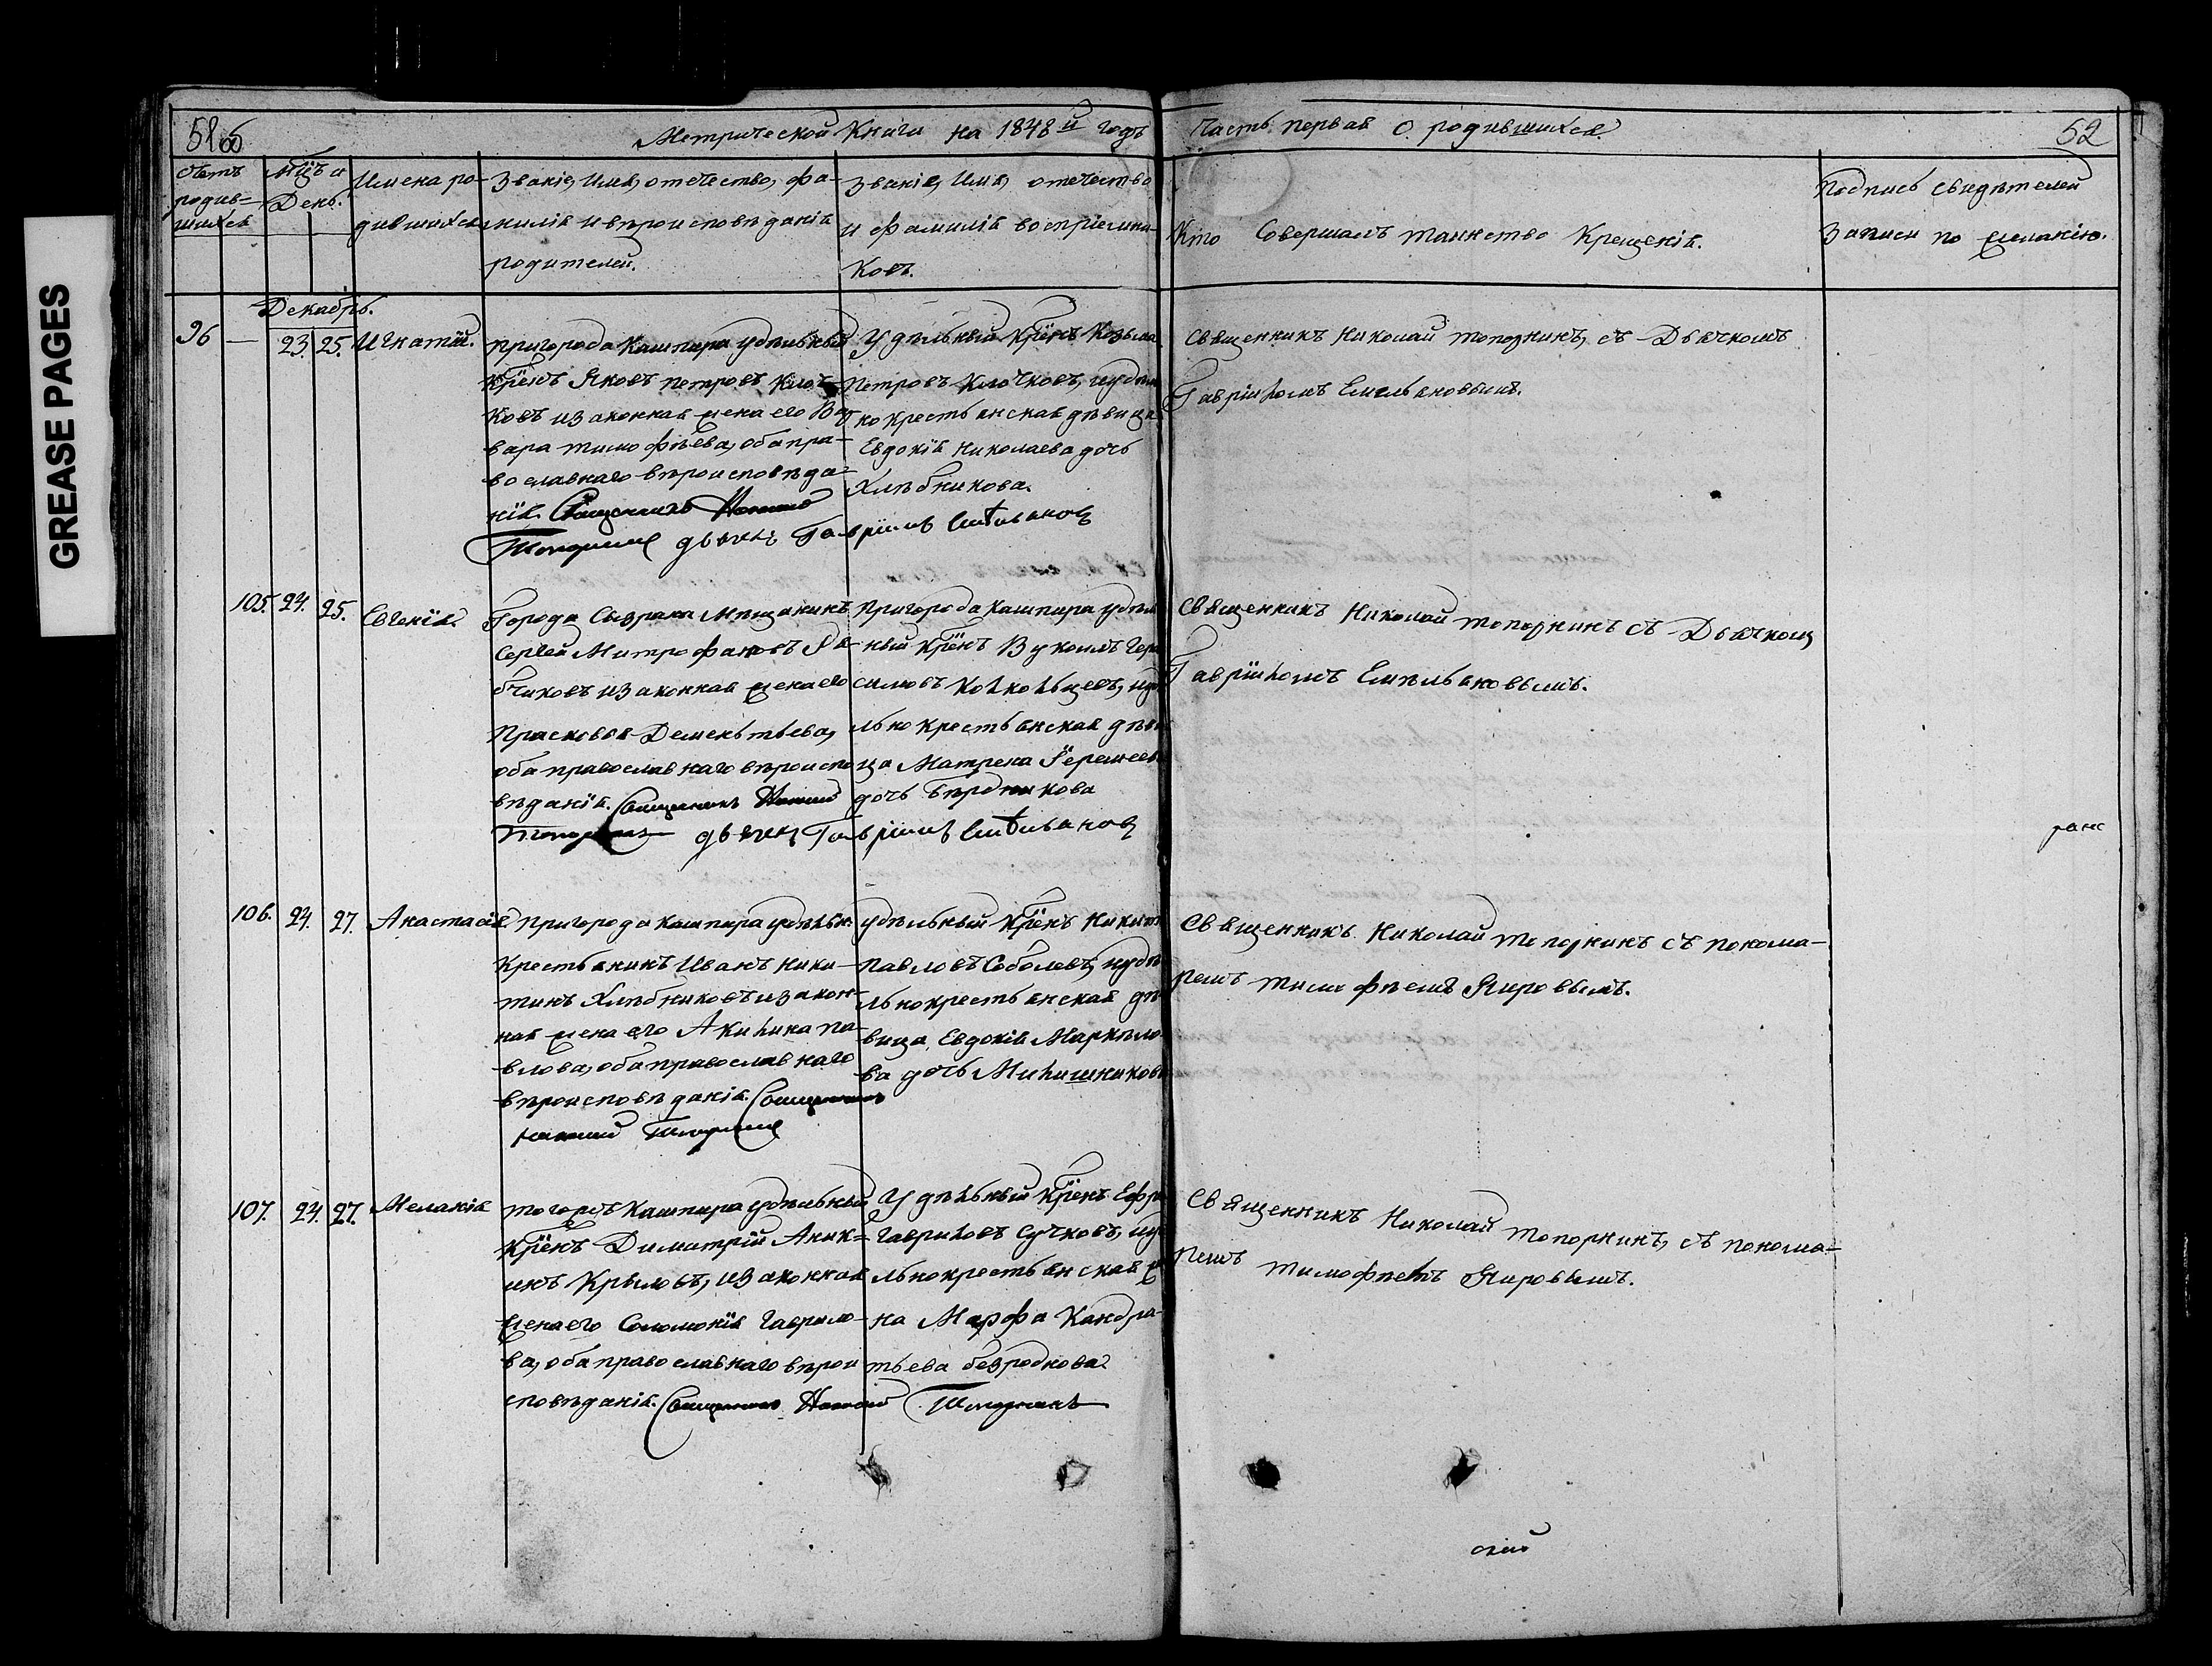 GREASE PAGES
51об
Метрической Книги на 1848й годъ
Часть первая о родившихся.
52
Счетъ родив-шихся
Мцъ и День.
Имена ро-
дившихся
Званіе, Имя, отечество, фа-
милія и вѣроисповѣданія
родителей.
Званіе, Имя, отечество
и фамилія воспріемни-
ковъ.
Кто Совершалъ таинство Крещенія.
Подпись свидѣтелей
Записи по желанію.
Декабрь.
96 — 23. 25. Игнатій.
Пригорода Кашпира удѣльный
Крёнъ Яковъ Петровъ Клоч-
ковъ изаконная жена его Вар
вара Тимофѣева, оба пра-
вославнаго вѣроисповѣда-
нія. Священникъ Николай
Топорнинъ дьячекъ Гавріилъ Емѣльяновъ
Удѣльный Крёнъ Козьма
Петровъ Клочковъ, иудѣль
нокрестьянская дѣвица
Евдокія Николаева дочь
Хлѣбникова.
Священникъ Николай Топорнинъ, съ Дьячкомъ
Гавріиломъ Емельяновымъ.
105. 24. 25. Евгенія.
Города Сызрана Мѣщанинъ
Сергей Митрофановъ Ря-
бчиковъ изаконная жена его
Прасковья Дементьева,
оба православнаго вѣроиспо
вѣданія. Священникъ Николай
Топорнинъ дьячекъ Гавріилъ Емѣльяновъ
Пригорода Кашпира удѣль
ный Крёнъ Вуколъ Гера
симовъ Колкольцевъ, иудѣ
льнокрестьянская дѣви
ца Матрена
дочь Бѣрдникова
Священникъ Николай Топорнинъ съ Дьячкомъ
Гавріиломъ Емѣльяновымъ.
106. 24. 27. Анастасія
Пригорода Кашпира удѣльн.
Крестьянинъ Иванъ Ники-
тинъ Хлѣбниковъ изакон-
ная жена его Акилина Па-
влова, оба православнаго
вѣроисповѣданія. Священникъ
Николай Топорнинъ
Удѣльный Крёнъ Никита
Павловъ Соболевъ, иудѣ
льнокрестьянская дѣ
вица Евдокія Маркѣло
ва дочь
Священникъ Николай Топорнинъ съ Понома-
ремъ Тимофѣемъ Яировымъ.
107. 24. 27. Меланія
Тогожъ Кашпира удѣльный
Крёнъ Димитрій Аник-
инъ Крыловъ, изаконная
жена его Соломонія Гаврило-
ва, оба православнаго вѣрои
сповѣданія. Священникъ Николай Топорнинъ
Удѣльный Крёнъ Ефре
Гавриловъ Сучковъ, иудѣ
льнокрестьянская же
на Марфа Кандра-
тьева безроднова
Священникъ Николай Топорнинъ, съ Понома-
ремъ Тимофѣемъ Яировымъ.